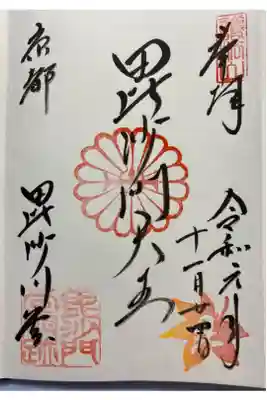 奉拝
令和元年
十一月廿四日
毘沙門天王
京都
毘沙門堂